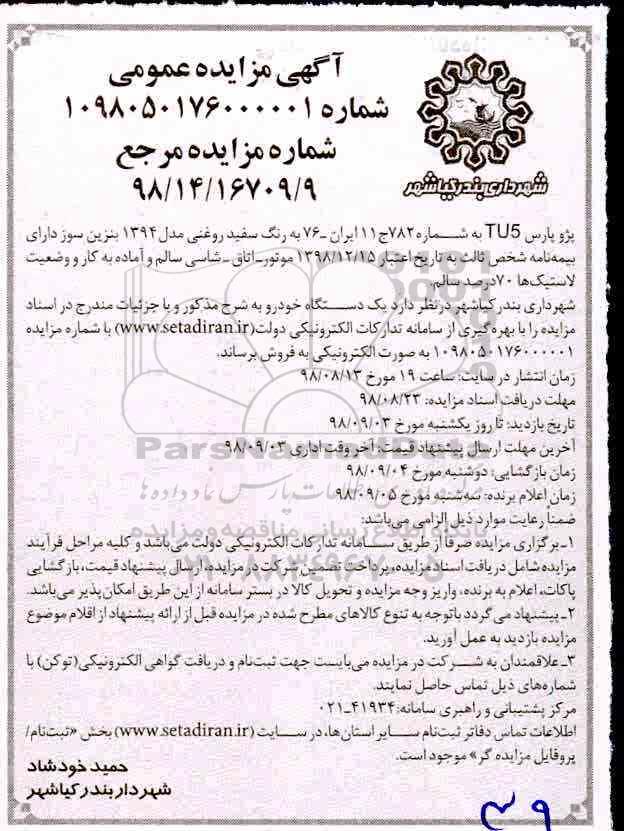 آگهی مزایده عمومی
شماره ۱۰۹۸۰۵۰۱۷۶۰۰۰۰۰۱
شماره مزایده مرجع
۹۸/۱۴/۱۶۷۰۹/۹
شهرداری بندر کیاشهر
پژو پارس TU5 به شماره ۷۸۲ج۱۱ ایران ـ۷۶ به رنگ سفید روغنی مدل ۱۳۹۴ بنزین سوز دارای
بیمه‌نامه شخص ثالث به تاریخ اعتبار ۱۳۹۸/۱۲/۱۵ موتورـ اتاق ـ شاسی سالم و آماده به کار و وضعیت
لاستیک‌ها ۷۰درصد سالم.
شهرداری بندر کیاشهر درنظر دارد یک دستگاه خودرو به شرح مذکور و با جزئیات مندرج در اسناد
مزایده را با بهره‌گیری از سامانه تدارکات الکترونیکی دولت(www.setadiran.ir) با شماره مزایده
۱۰۹۸۰۵۰۱۷۶۰۰۰۰۰۱ به صورت الکترونیکی به فروش برساند.
زمان انتشار در سایت: ساعت ۱۹ مورخ ۹۸/۰۸/۱۳
مهلت دریافت اسناد مزایده: ۹۸/۰۸/۲۳
تاریخ بازدید: تا روز یکشنبه مورخ ۹۸/۰۹/۰۳
آخرین مهلت ارسال پیشنهاد قیمت: آخر وقت اداری ۹۸/۰۹/۰۳
زمان بازگشایی: دوشنبه مورخ ۹۸/۰۹/۰۴
زمان اعلام برنده: سه‌شنبه مورخ ۹۸/۰۹/۰۵
ضمناً رعایت موارد ذیل الزامی می‌باشد:
۱ـ برگزاری مزایده صرفاً از طریق سامانه تدارکات الکترونیکی دولت می‌باشد و کلیه مراحل فرآیند
مزایده شامل دریافت اسناد مزایده، پرداخت تضمین شرکت در مزایده، ارسال پیشنهاد قیمت، بازگشایی
پاکات، اعلام به برنده، واریز وجه مزایده و تحویل کالا در بستر سامانه از این طریق امکان‌پذیر می‌باشد.
۲ـ پیشنهاد می‌گردد باتوجه به تنوع کالاهای مطرح شده در مزایده قبل از ارائه پیشنهاد از اقلام موضوع
مزایده بازدید به عمل آورید.
۳ـ علاقمندان به شرکت در مزایده می‌بایست جهت ثبت‌نام و دریافت گواهی الکترونیکی(توکن) با
شماره‌های ذیل تماس حاصل نمایند.
مرکز پشتیبانی و راهبری سامانه: ۴۱۹۳۴ـ۰۲۱
اطلاعات تماس دفاتر ثبت‌نام سایر استان‌ها، در سایت (www.setadiran.ir) بخش «ثبت‌نام/
پروفایل مزایده گر» موجود است.
حمید خودشاد
شهردار بندر کیاشهر
ParsNamadData